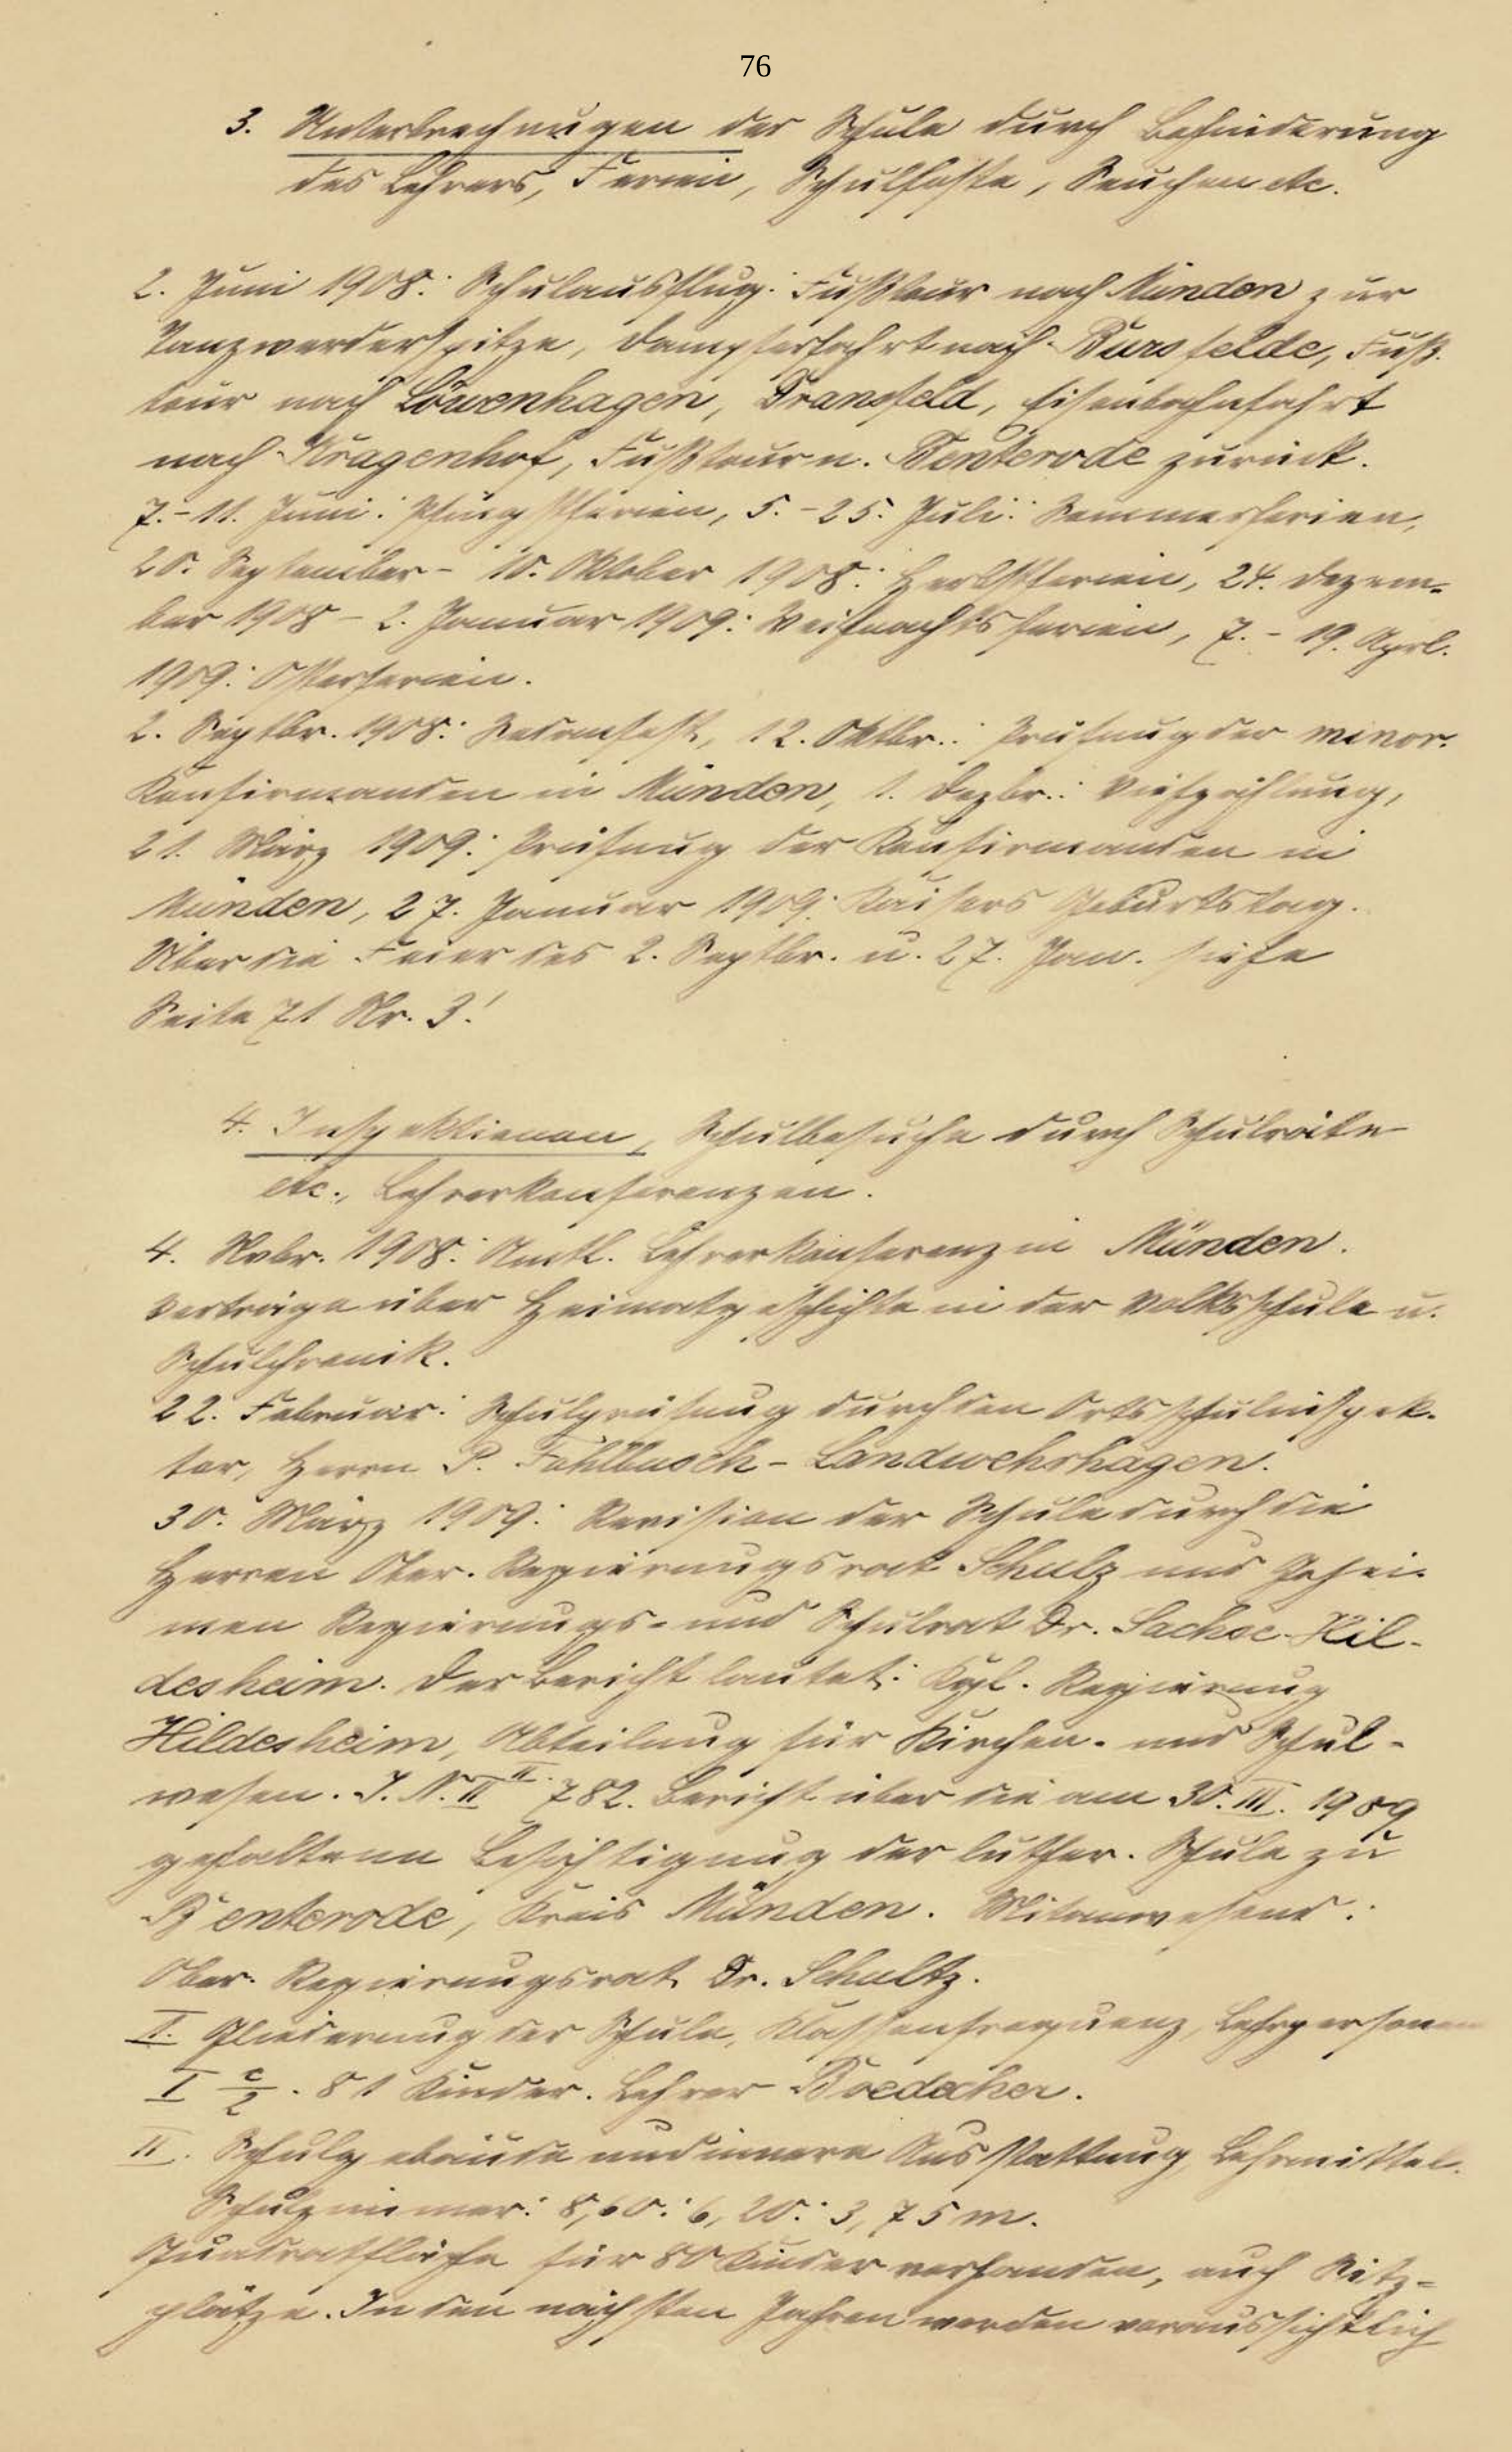 76
3. Unterbrechnugen der Schule durch Behinderung
des Lehrers, Ferien, Schulfeste, Seuchen etc.
2. Juni 1908: Schulausflug: Fußtour nach Münden zur
Tanzwerderspitze, Dampferfahrt nach Bursfelde, Fuß-
tour nach Löwenhagen, Dransfeld, Eisenbahnfahrt
nach Kragenhof, Fußtour n. Benterode zurück.
7.-11. Juni: Pfingstferien, 5.-25. Juli: Sommerferien,
20. September - 10. Oktober 1908: Herbstferien, 24. Dezem-
ber 1908 - 2. Januar 1909: Weihnachtsferien, 7. - 19. Aprl.
1909: Osterferien.
2. Septbr. 1908: Sedanfest, 12. Oktbr.: Prüfung der minor.
Konfirmanden in Münden, 1. Dezbr.: Viehzählung,
21. März 1909: Prüfung der Konfirmanden in
Münden, 27. Januar 1909: Kaisers Geburtstag.
Über die Feier des 2. Septbr. u. 27. Jan. siehe
Seite 71 Nr. 3!
4. Inspektionen, Schulbesuche durch Schulräte
etc., Lehrerkonferenzen.
4. Nvbr. 1908: Amtl. Lehrerkonferenz in Münden.
Vorträge über Heimatgeschichte in der Volksschule u.
Schulchronik.
22. Februar: Schulprüfung durch den Ortsschulinspek-
tor, Herrn P. Fahlbusch - Landwehrhagen.
30. März 1909: Revision der Schule durch die
Herren Ober-Regierungsrat Schulz und Gehei-
men Regierungs- und Schulrat Dr. Sachse-Hil-
desheim. Der Bericht lautet: Kgl. Regierung
Hildesheim, Abteilung für Kirchen- und Schul-
wesen. J. N. II II. 782. Bericht über die am 30. III. 1909
gehaltene Besichtigung der luther. Schule zu
Benterode, Kreis Münden. Mitanwesend:
Ober-Regierungsrat Dr. Schultz.
I. Gliederung der Schule, Klassenfrequenz, Lehrpersonen
I c/2. 81 Kinder. Lehrer Boedecker.
II. Schulgebäude und innere Ausstattung, Lehrmittel.
Schulzimmer: 8,60 : 6,20 : 3,75 m.
Quadratfläche für 80 Kinder vorhanden, auch Sitz-
plätze. In den nächsten Jahren werden voraussichtlich